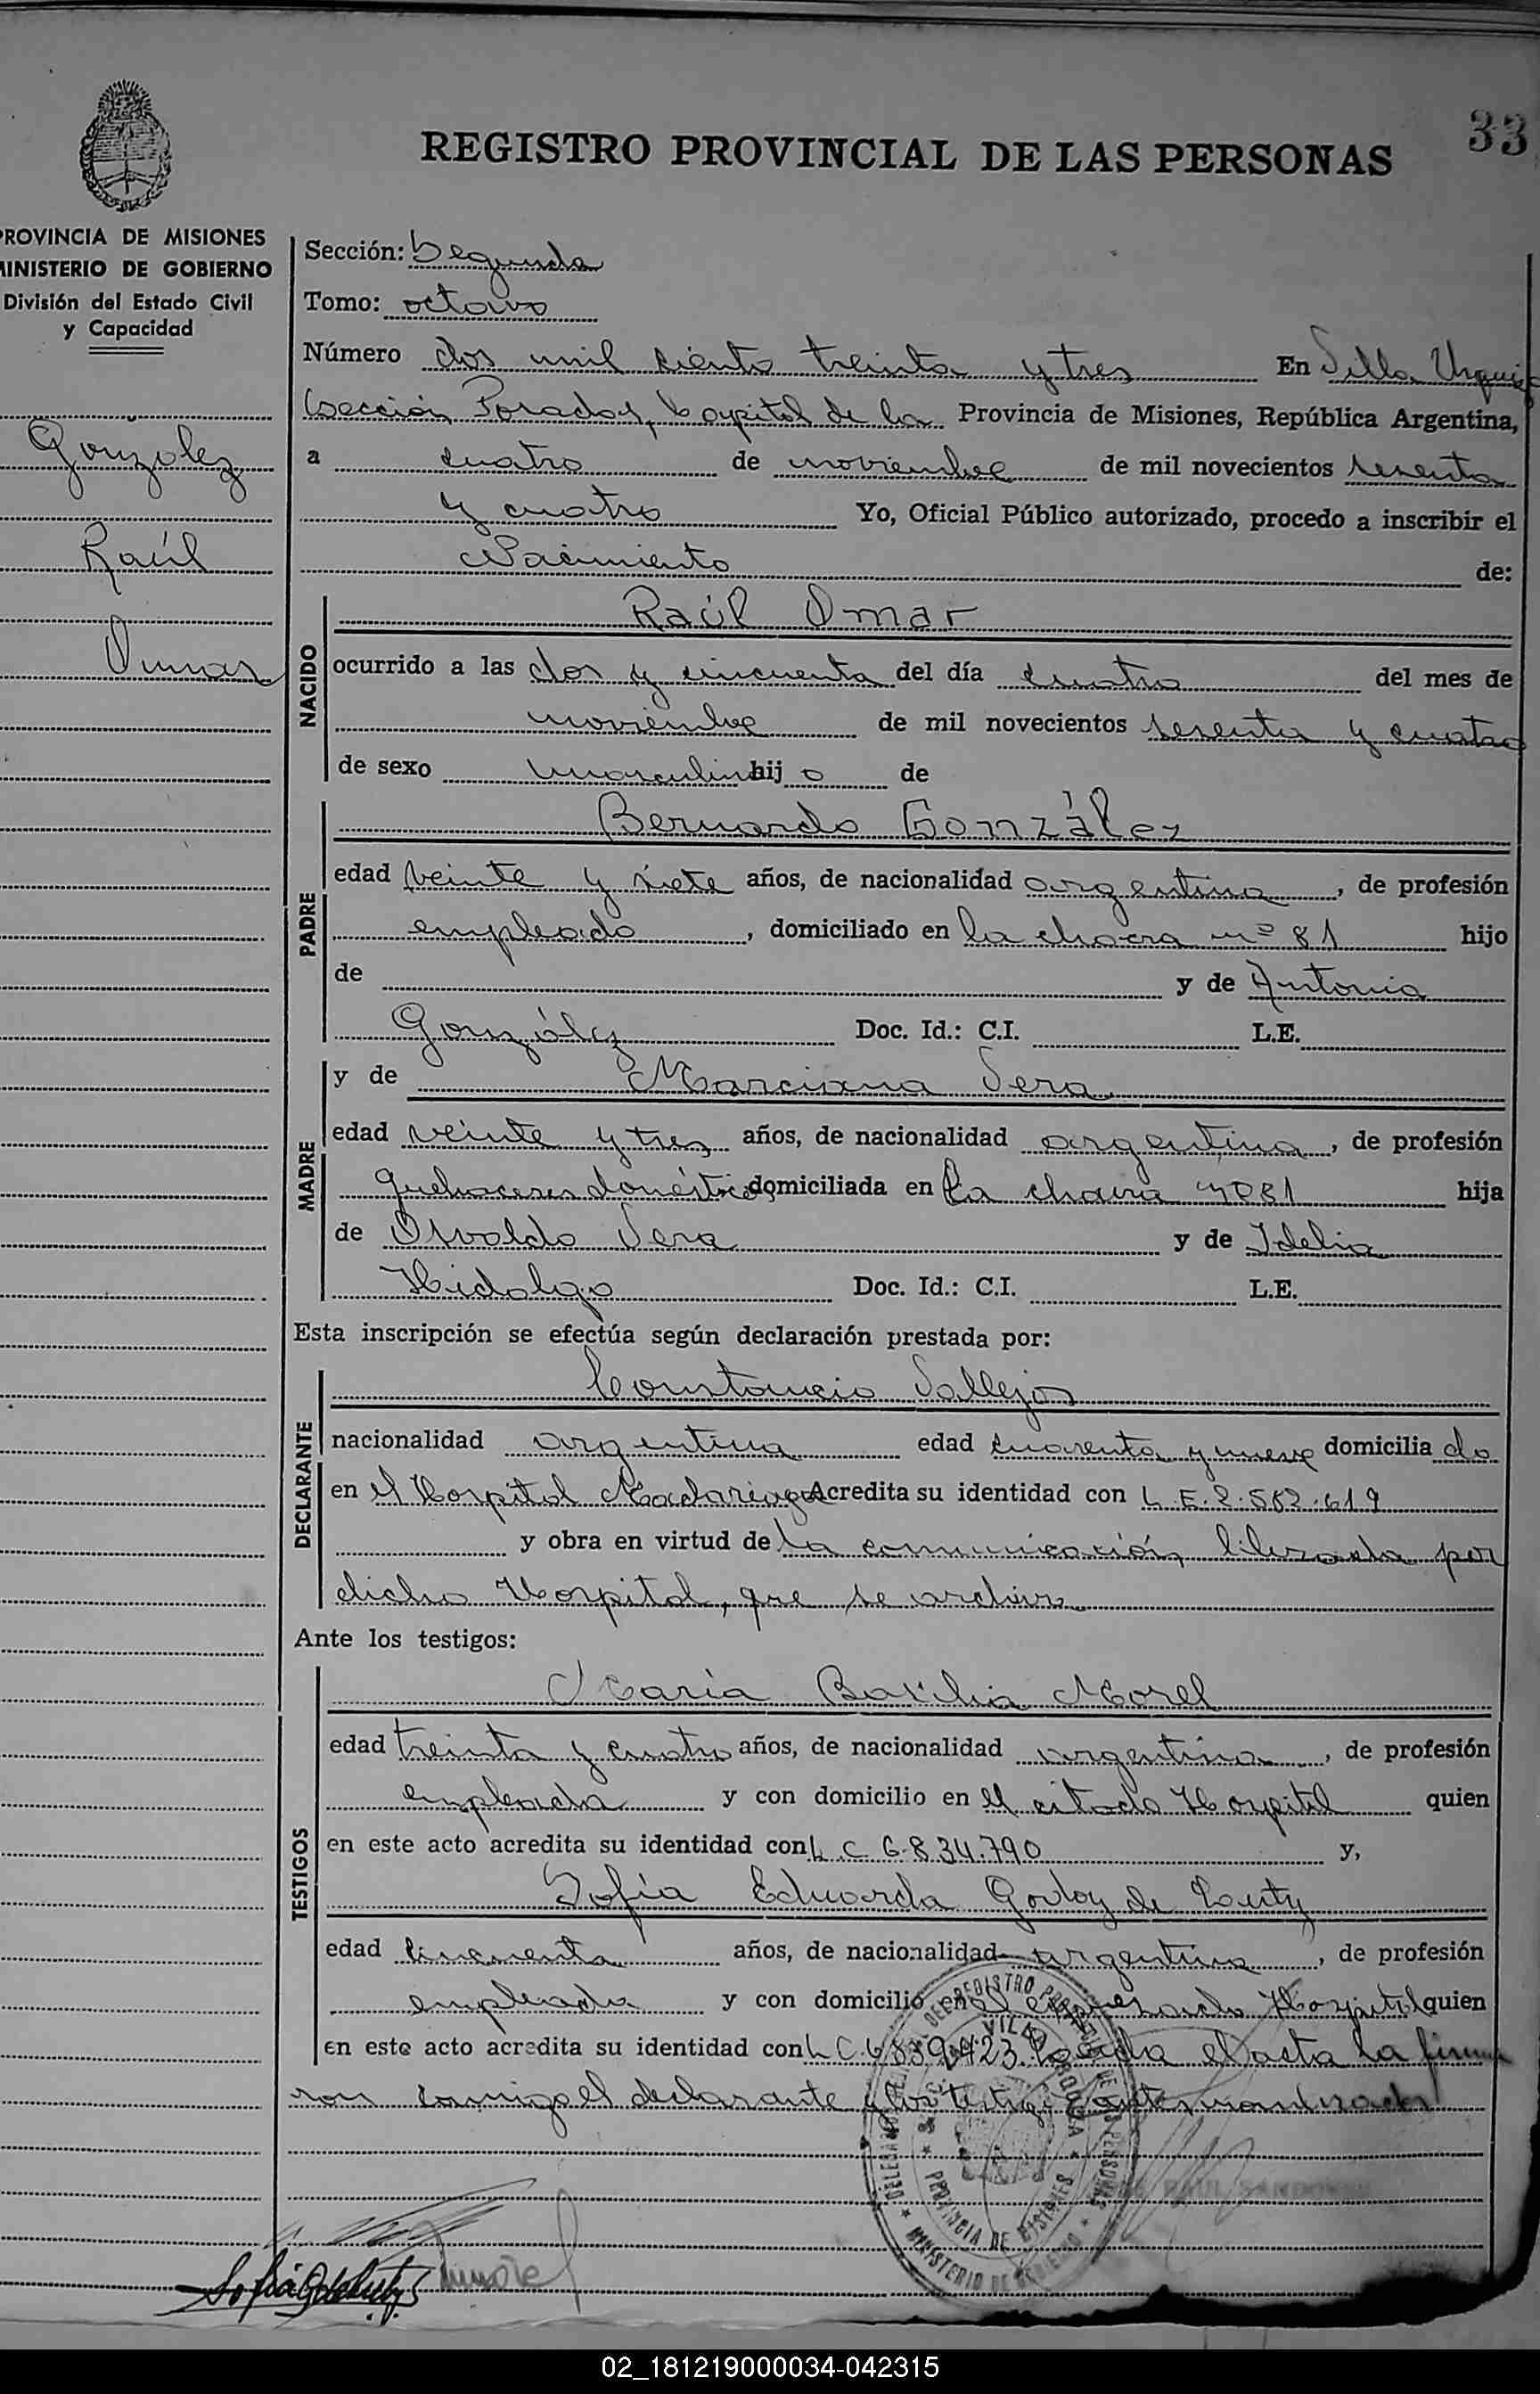 33
REGISTRO PROVINCIAL DE LAS PERSONAS
PROVINCIA DE MISIONES
MINISTERIO DE GOBIERNO
División del Estado Civil
y Capacidad
González
Raúl
Omar
Sección: Segunda
Tomo: octavo
Número dos mil ciento treinta y tres En Villa Urquiza
(sección Posadas, Capital de la Provincia de Misiones, República Argentina,
a cuatro de noviembre de mil novecientos sesenta
y cuatro Yo, Oficial Público autorizado, procedo a inscribir el
Nacimiento de:
NACIDO
Raúl Omar
ocurrido a las dos y cincuenta del día cuatro del mes de
noviembre de mil novecientos sesenta y cuatro
de sexo masculino hijo de
PADRE
Bernardo González
edad veinte y siete años, de nacionalidad argentina, de profesión
empleado, domiciliado en la chacra nº 81 hijo
de y de Antonia
González Doc. Id.: C.I. L.E.
MADRE
y de Marciana Vera
edad veinte y tres años, de nacionalidad argentina, de profesión
quehaceres domésticos, domiciliada en la chacra nº 81 hija
de Osvaldo Vera y de Idelia
Hidalgo Doc. Id.: C.I. L.E.
Esta inscripción se efectúa según declaración prestada por:
DECLARANTE
Constancio Vallejos
nacionalidad argentina edad cuarenta y nueve domiciliado
en el Hospital Madariaga Acredita su identidad con L.E. 2.582.619
y obra en virtud de la comunicación librada por
dicho Hospital, que se archiva
Ante los testigos:
TESTIGOS
María Basilia Morel
edad treinta y cuatro años, de nacionalidad argentina, de profesión
empleada y con domicilio en el citado Hospital quien
en este acto acredita su identidad con L C 6.834.790 y,
Sofía Eduarda Godoy de
edad cincuenta años, de nacionalidad argentina, de profesión
empleada y con domicilio en el expresado Hospital quien
en este acto acredita su identidad con L C. 6839423. Leída el acta la firma
ron conmigo el declarante y los testigos antes nombrados
DELEGACION DEL REGISTRO PROVINCIAL DE LAS PERSONAS
VILLA URQUIZA
PROVINCIA DE MISIONES
MINISTERIO DE GOBIERNO
RAUL SANDOVAL
Morel
02_181219000034-042315